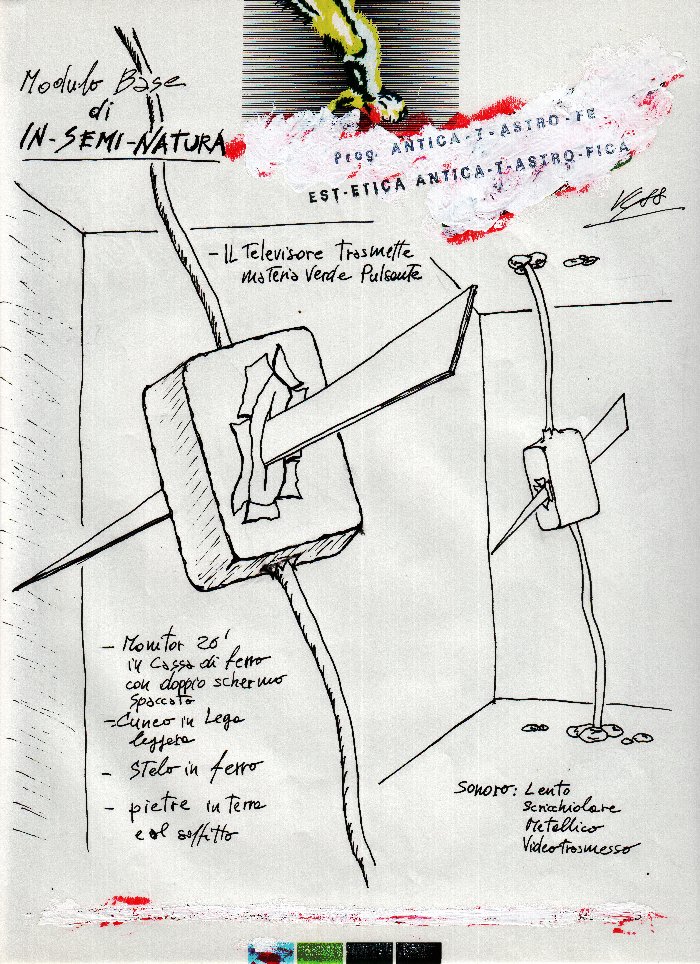 Modulo Base
di
IN-SEMI-NATURA
Prog. ANTICA-T-ASTRO-FE
EST-ETICA ANTICA-T-ASTRO-FICA
- IL Televisore Trasmette
materia Verde Pulsante
- Monitor 20'
in Cassa di ferro
con doppio schermo
spaccato
- Cuneo in Lega
leggera
- Stelo in ferro
- pietre in terra
e al soffitto
Sonoro: Lento
Scricchiolare
Metallico
Videotrasmesso